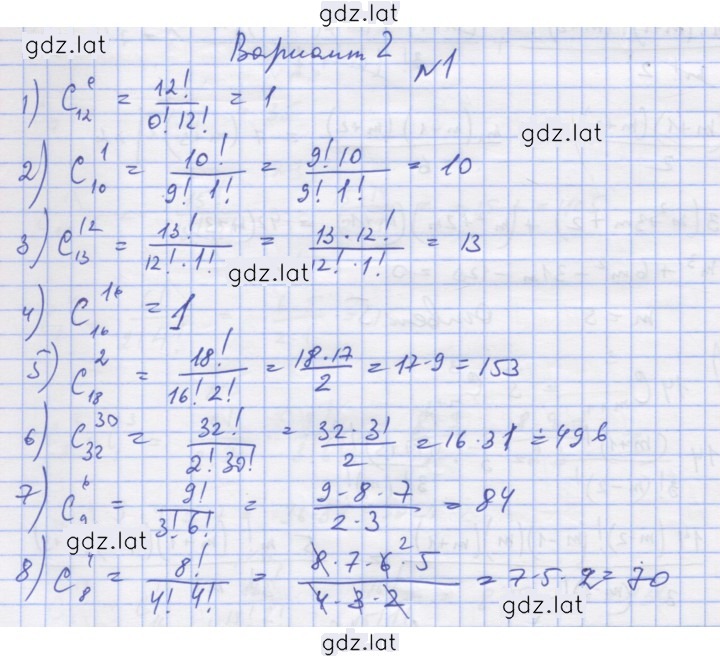 gdz.lat
gdz.lat
Вариант 2
№1
1) C₁₂⁰ = 12! / 0! 12! = 1
gdz.lat
2) C₁₀¹ = 10! / 9! 1! = 9! 10 / 9! 1! = 10
3) C₁₃¹² = 13! / 12! · 1! = 13 · 12! / 12! · 1! = 13
gdz.lat
4) C₁₆¹⁶ = 1
5) C₁₈² = 18! / 16! 2! = 18 · 17 / 2 = 17 · 9 = 153
6) C₃₂³⁰ = 32! / 2! 30! = 32 · 31 / 2 = 16 · 31 = 496
7) C₉⁶ = 9! / 3! 6! = 9 · 8 · 7 / 2 · 3 = 84
gdz.lat
8) C₈⁴ = 8! / 4! 4! = 8 · 7 · 6² · 5 / 4 · 3 · 2 = 7 · 5 · 2 = 70
gdz.lat
gdz.lat